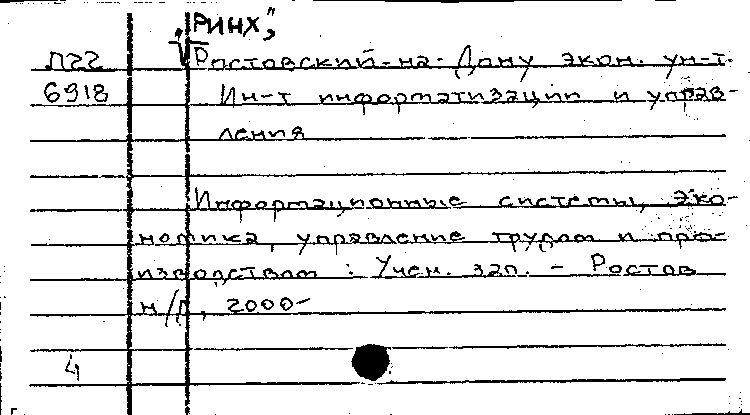 "РИНХ",
П22 Ростовский-на-Дону экон. ун-т.
6918 Ин-т информатизации и управ-
ления
Информационные системы, эко-
номика, управление трудом и про-
изводством : Учен. зап. - Ростов
н/Д, 2000-
4